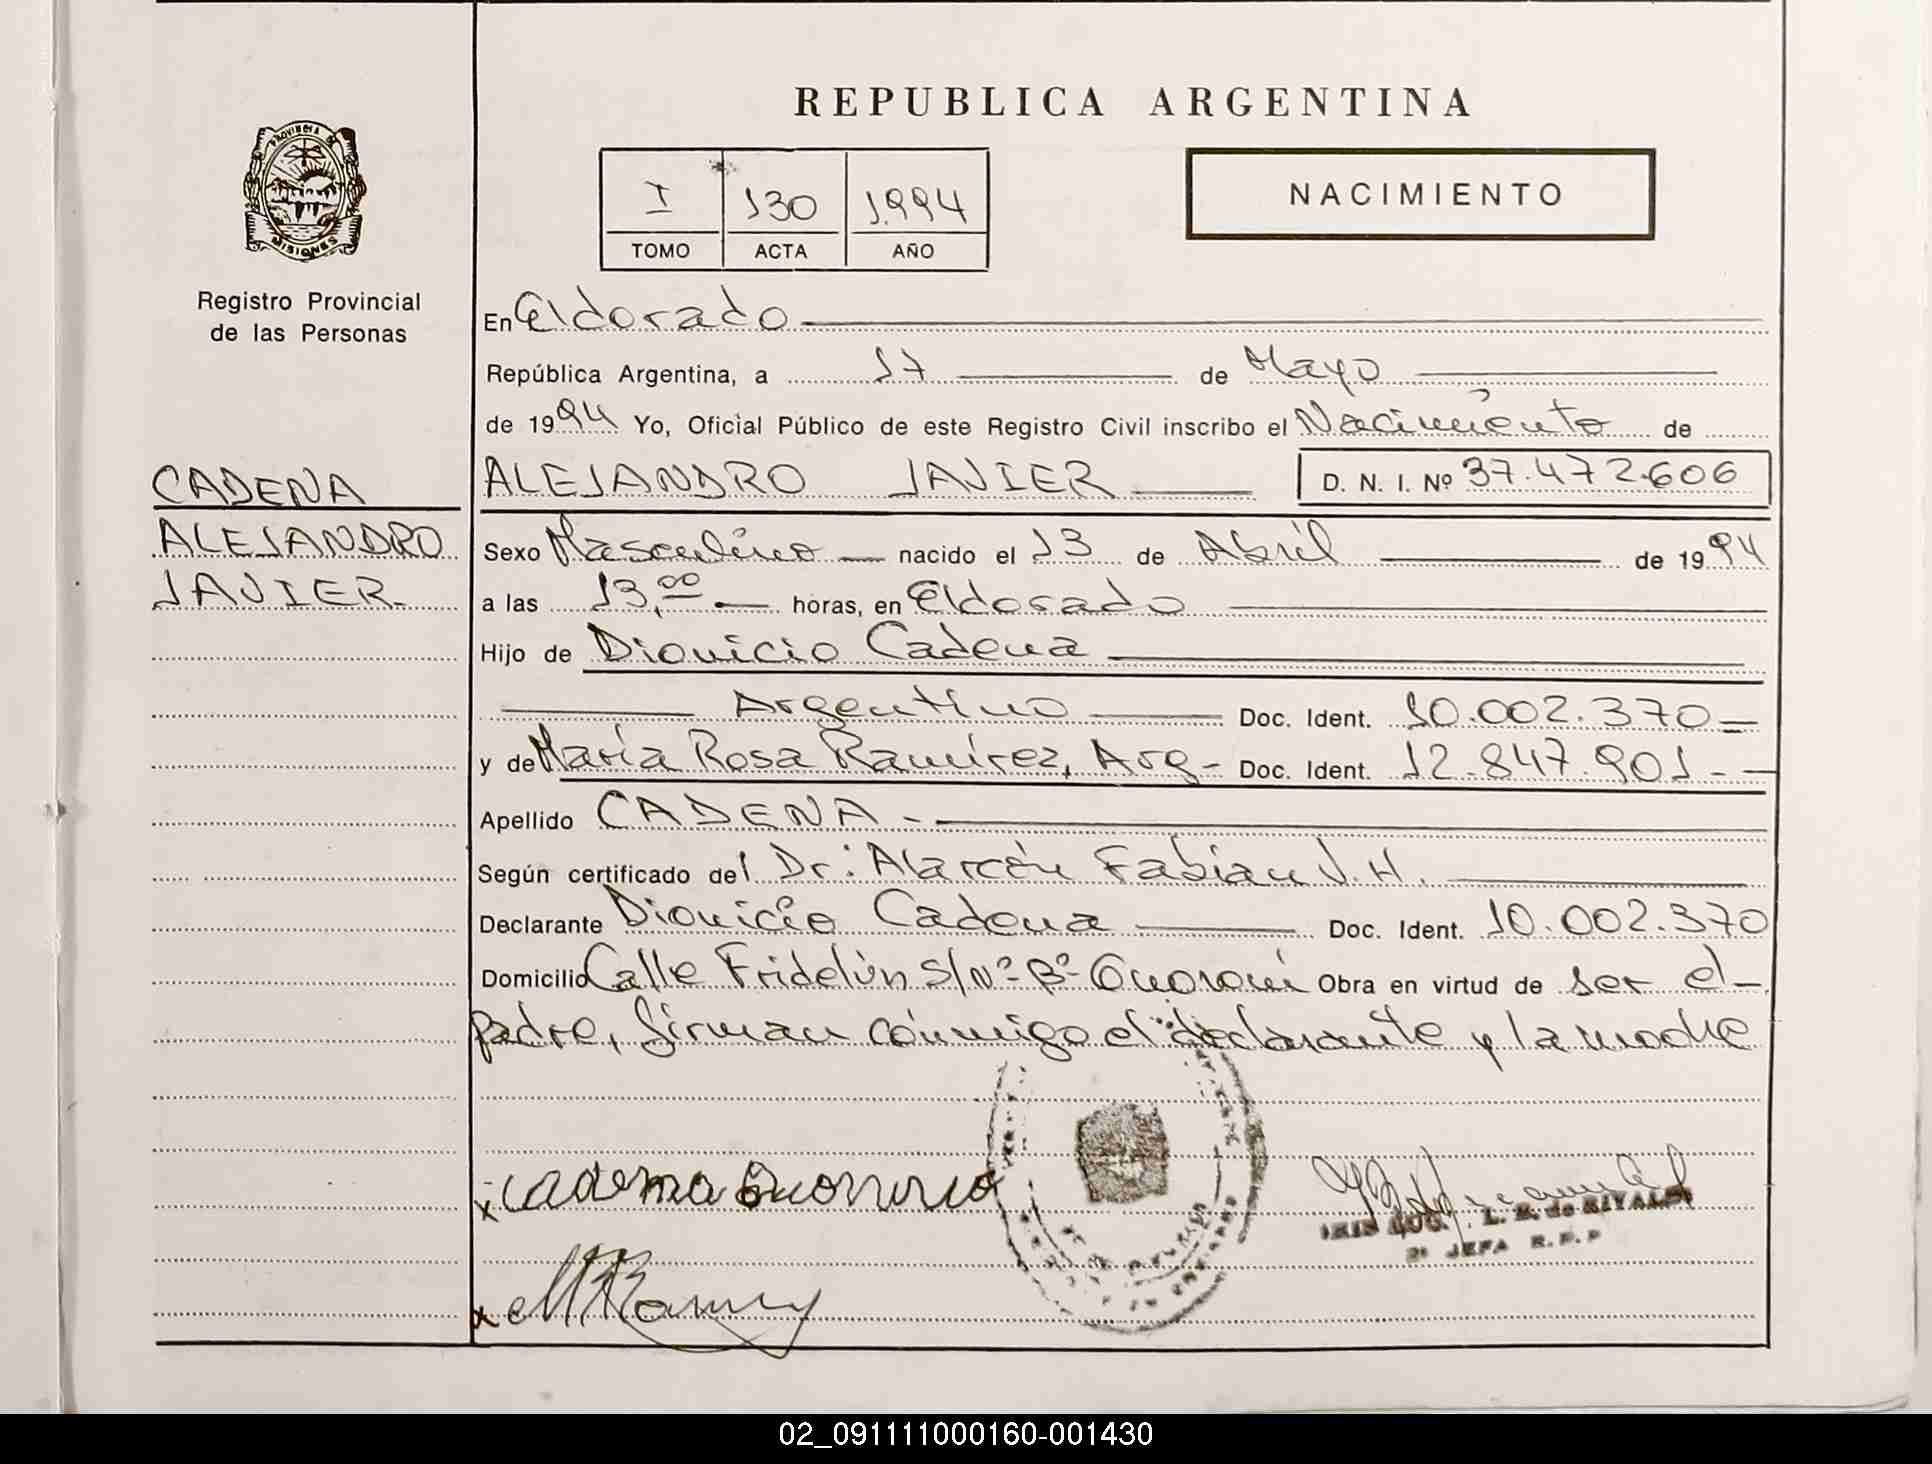 REPUBLICA ARGENTINA
PROVINCIA DE
MISIONES
Registro Provincial
de las Personas
I 130 1994
TOMO ACTA AÑO
NACIMIENTO
En Eldorado
República Argentina, a 17 de Mayo
de 1994 Yo, Oficial Público de este Registro Civil inscribo el Nacimiento de
CADENA
ALEJANDRO
JAVIER
ALEJANDRO JAVIER D. N. I. Nº 37.472.606
Sexo Masculino nacido el 13 de Abril de 1994
a las 13,00 horas, en Eldorado
Hijo de Dionicio Cadena
Argentino Doc. Ident. 10.002.370
y de María Rosa Ramírez, Arg- Doc. Ident. 12.847.901-
Apellido CADENA -
Según certificado del Dr: Alarcón Fabian J.H.
Declarante Dionicio Cadena Doc. Ident. 10.002.370
Domicilio Calle Fridelún S/Nº- Bº- Guaraní Obra en virtud de ser el-
padre, firman conmigo el declarante y la madre
x cadena
x
L. B. de RIVALD
2ª JEFA R.P.P
02_091111000160-001430